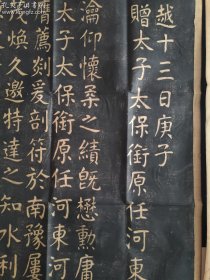 越十三日庚子
贈太子太保銜原任河東
瀹仰懷柔之績旣懋勳庸
太子太保銜原任河東河
膺薦剡爰剖符於南豫屢
煥久邀特達之知水利